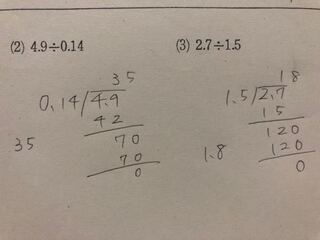 (2) 4.9÷0.14
35
0.14 4.9
42
70
35
70
0
(3) 2.7÷1.5
18
1.5 2.7
15
120
1.8
120
0